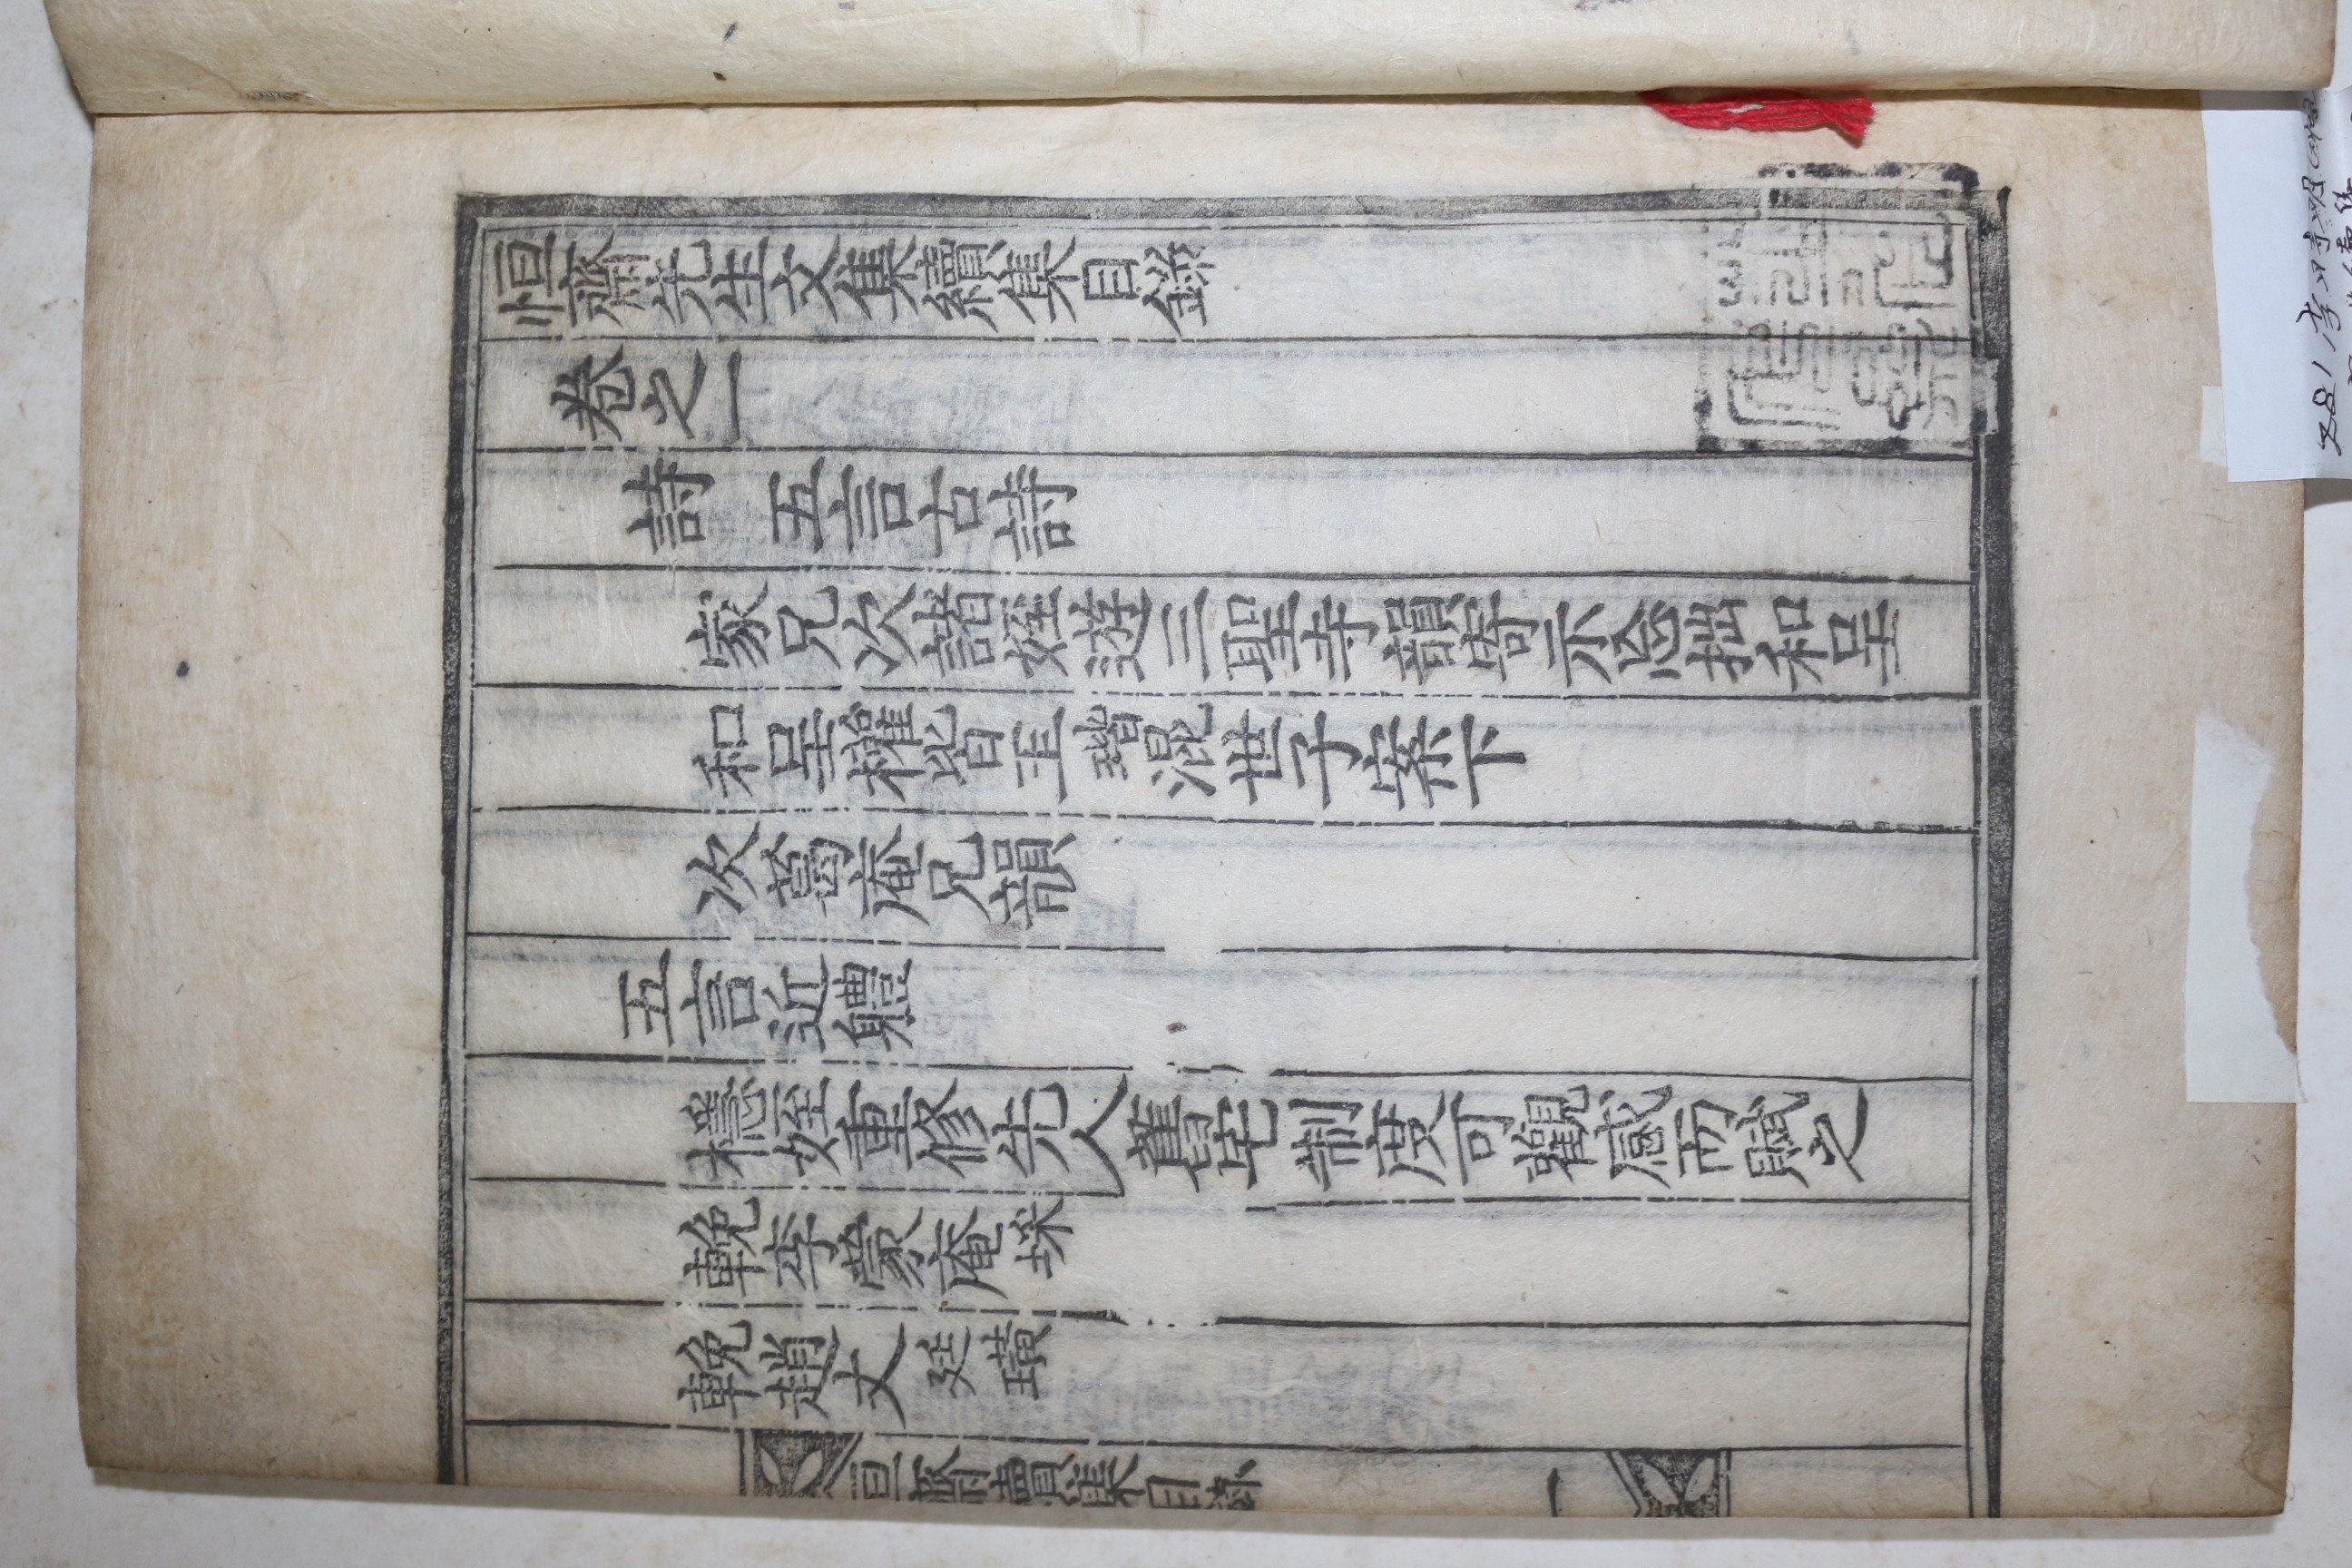 恒齋先生文集續集目錄
卷之一
詩 五言古詩
家兄次諸姪遊三聖寺韻寄示忩拙和呈
和呈權皆玉瑎混世子案下
次葛庵兄韻
五言近軆
檼姪重修先人舊宅制度可觀感而賦之
輓李蒙庵埰
輓趙丈廷璜
恒齋續集目錄
一
281 李時明